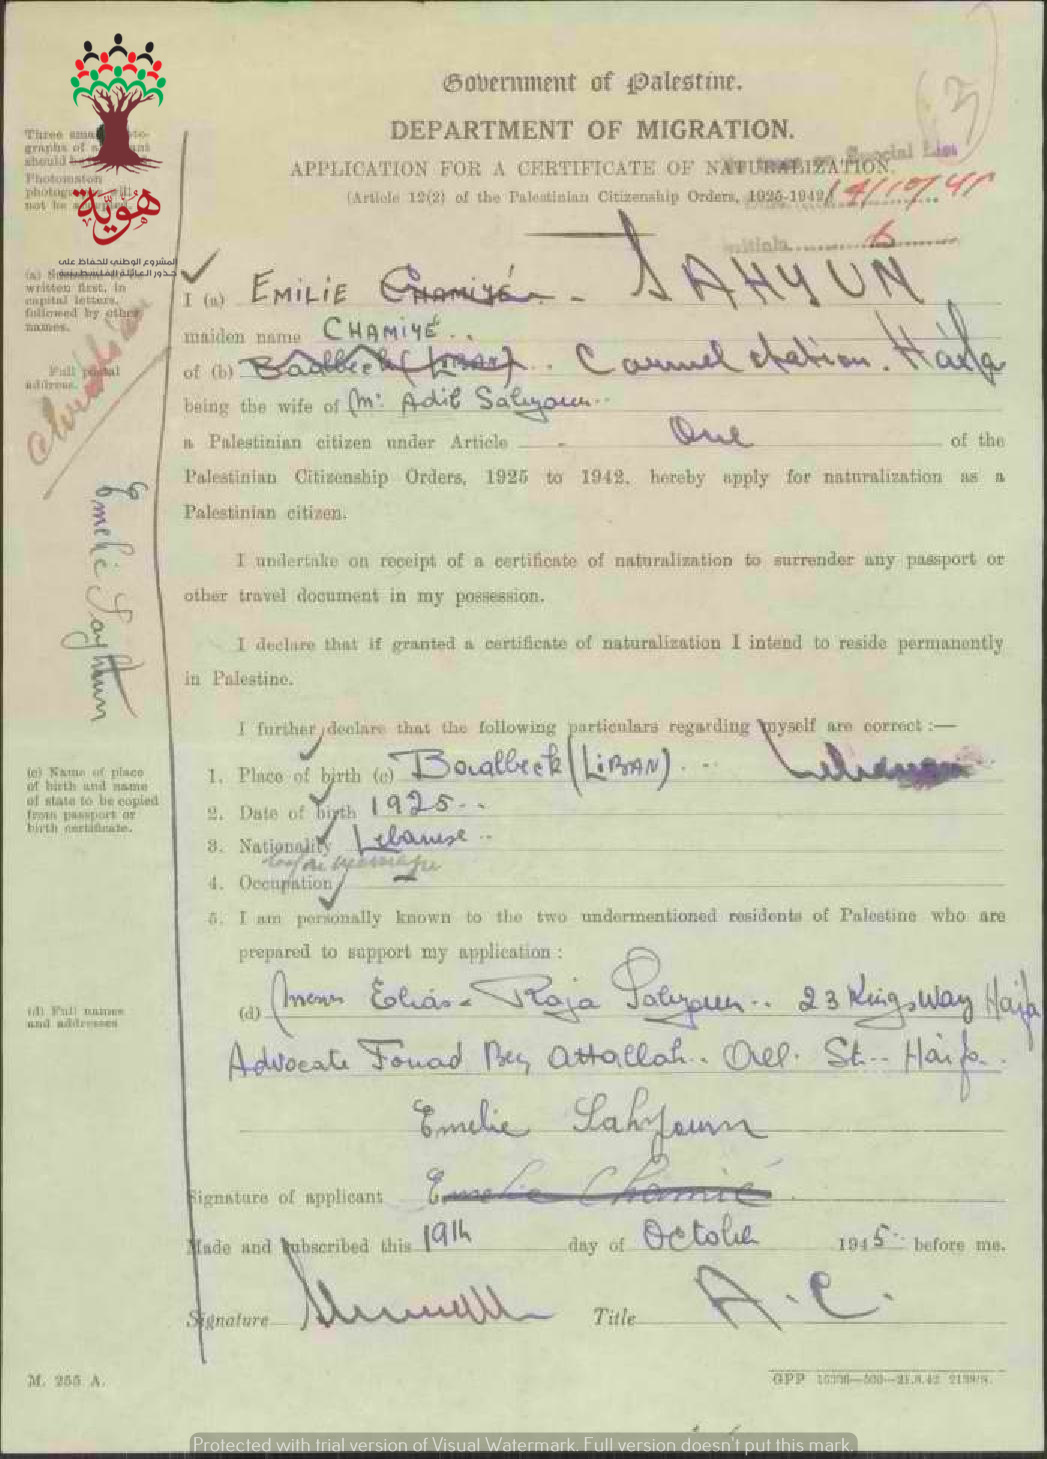 Government of Palestine.
DEPARTMENT OF MIGRATION.
APPLICATION FOR A CERTIFICATE OF NATURALIZATION.
(Article 12(2) of the Palestinian Citizenship Orders, 1925-1942)
Special List
4/10/45
Initials
هوية
المشروع الوطني للحفاظ على
جذور العائلة الفلسطينية
Three
graphs of
should
Photomaton
not be accepted.
(a)
written first, in
capital letters,
followed by other
names.
Full postal
address.
I (a) EMILIE CHAMIYÉ - SAHYUN
maiden name CHAMIYÉ . .
of (b) Baalbeck (LIBAN) . . Carmel station. Haifa
being the wife of Mr. Adib Sahyoun . .
a Palestinian citizen under Article - One of the
Palestinian Citizenship Orders, 1925 to 1942, hereby apply for naturalization as a
Palestinian citizen.
Emelie Sahyoun
I undertake on receipt of a certificate of naturalization to surrender any passport or
other travel document in my possession.
I declare that if granted a certificate of naturalization I intend to reside permanently
in Palestine.
I further declare that the following particulars regarding myself are correct :—
(c) Name of place
of birth and name
of state to be copied
from passport or
birth certificate.
1. Place of birth (c) Baalbeck (LIBAN) . - . Lebanon
2. Date of birth 1925 . .
3. Nationality Lebanese . .
4. Occupation —
5. I am personally known to the two undermentioned residents of Palestine who are
prepared to support my application :
(d) Full names
and addresses
(d) Elias - Raja Sahyoun . . 23 Kingsway Haifa
Advocate Fouad Bey Attallah . . St. . . Haifa .
Emelie Sahyoun
Signature of applicant Emelie Chamié
Made and subscribed this 19th day of October 1945 before me.
Signature Title A. C.
M. 255 A.
GPP
Protected with trial version of Visual Watermark. Full version doesn't put this mark.